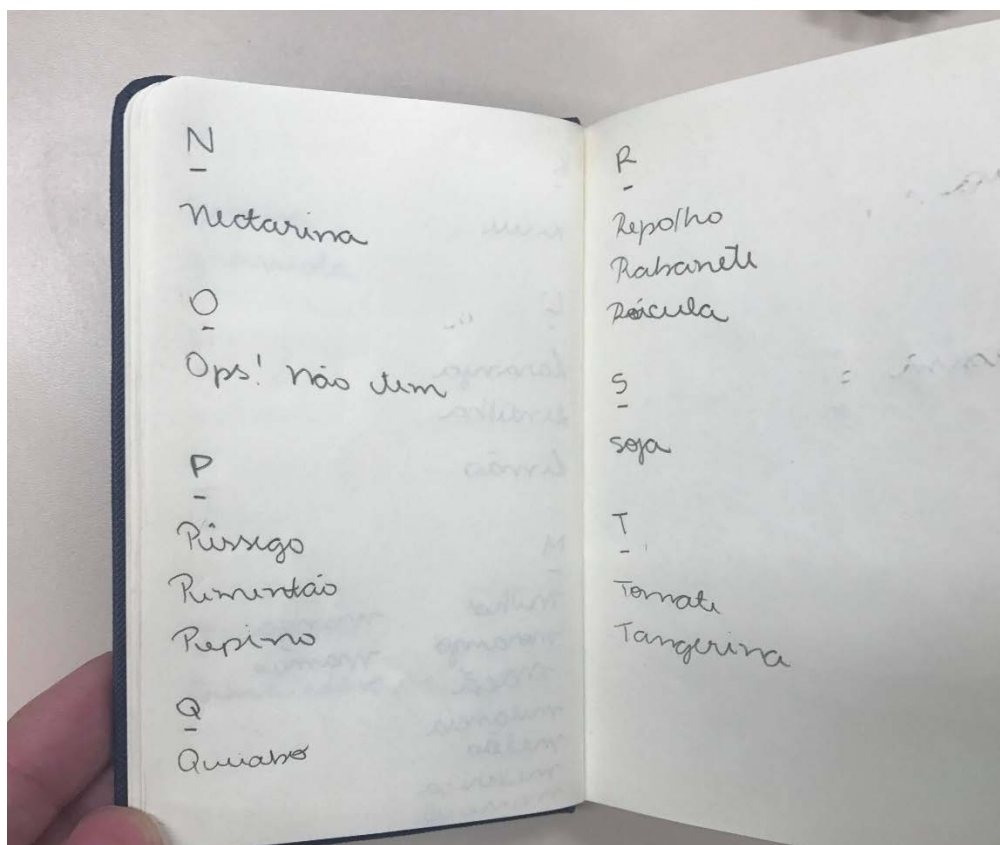 N
Nectarina
O
Ops! não tem
P
Pêssego
Pimentão
Pepino
Q
Quiabo
R
Repolho
Rabanete
Rúcula
S
Soja
T
Tomate
Tangerina